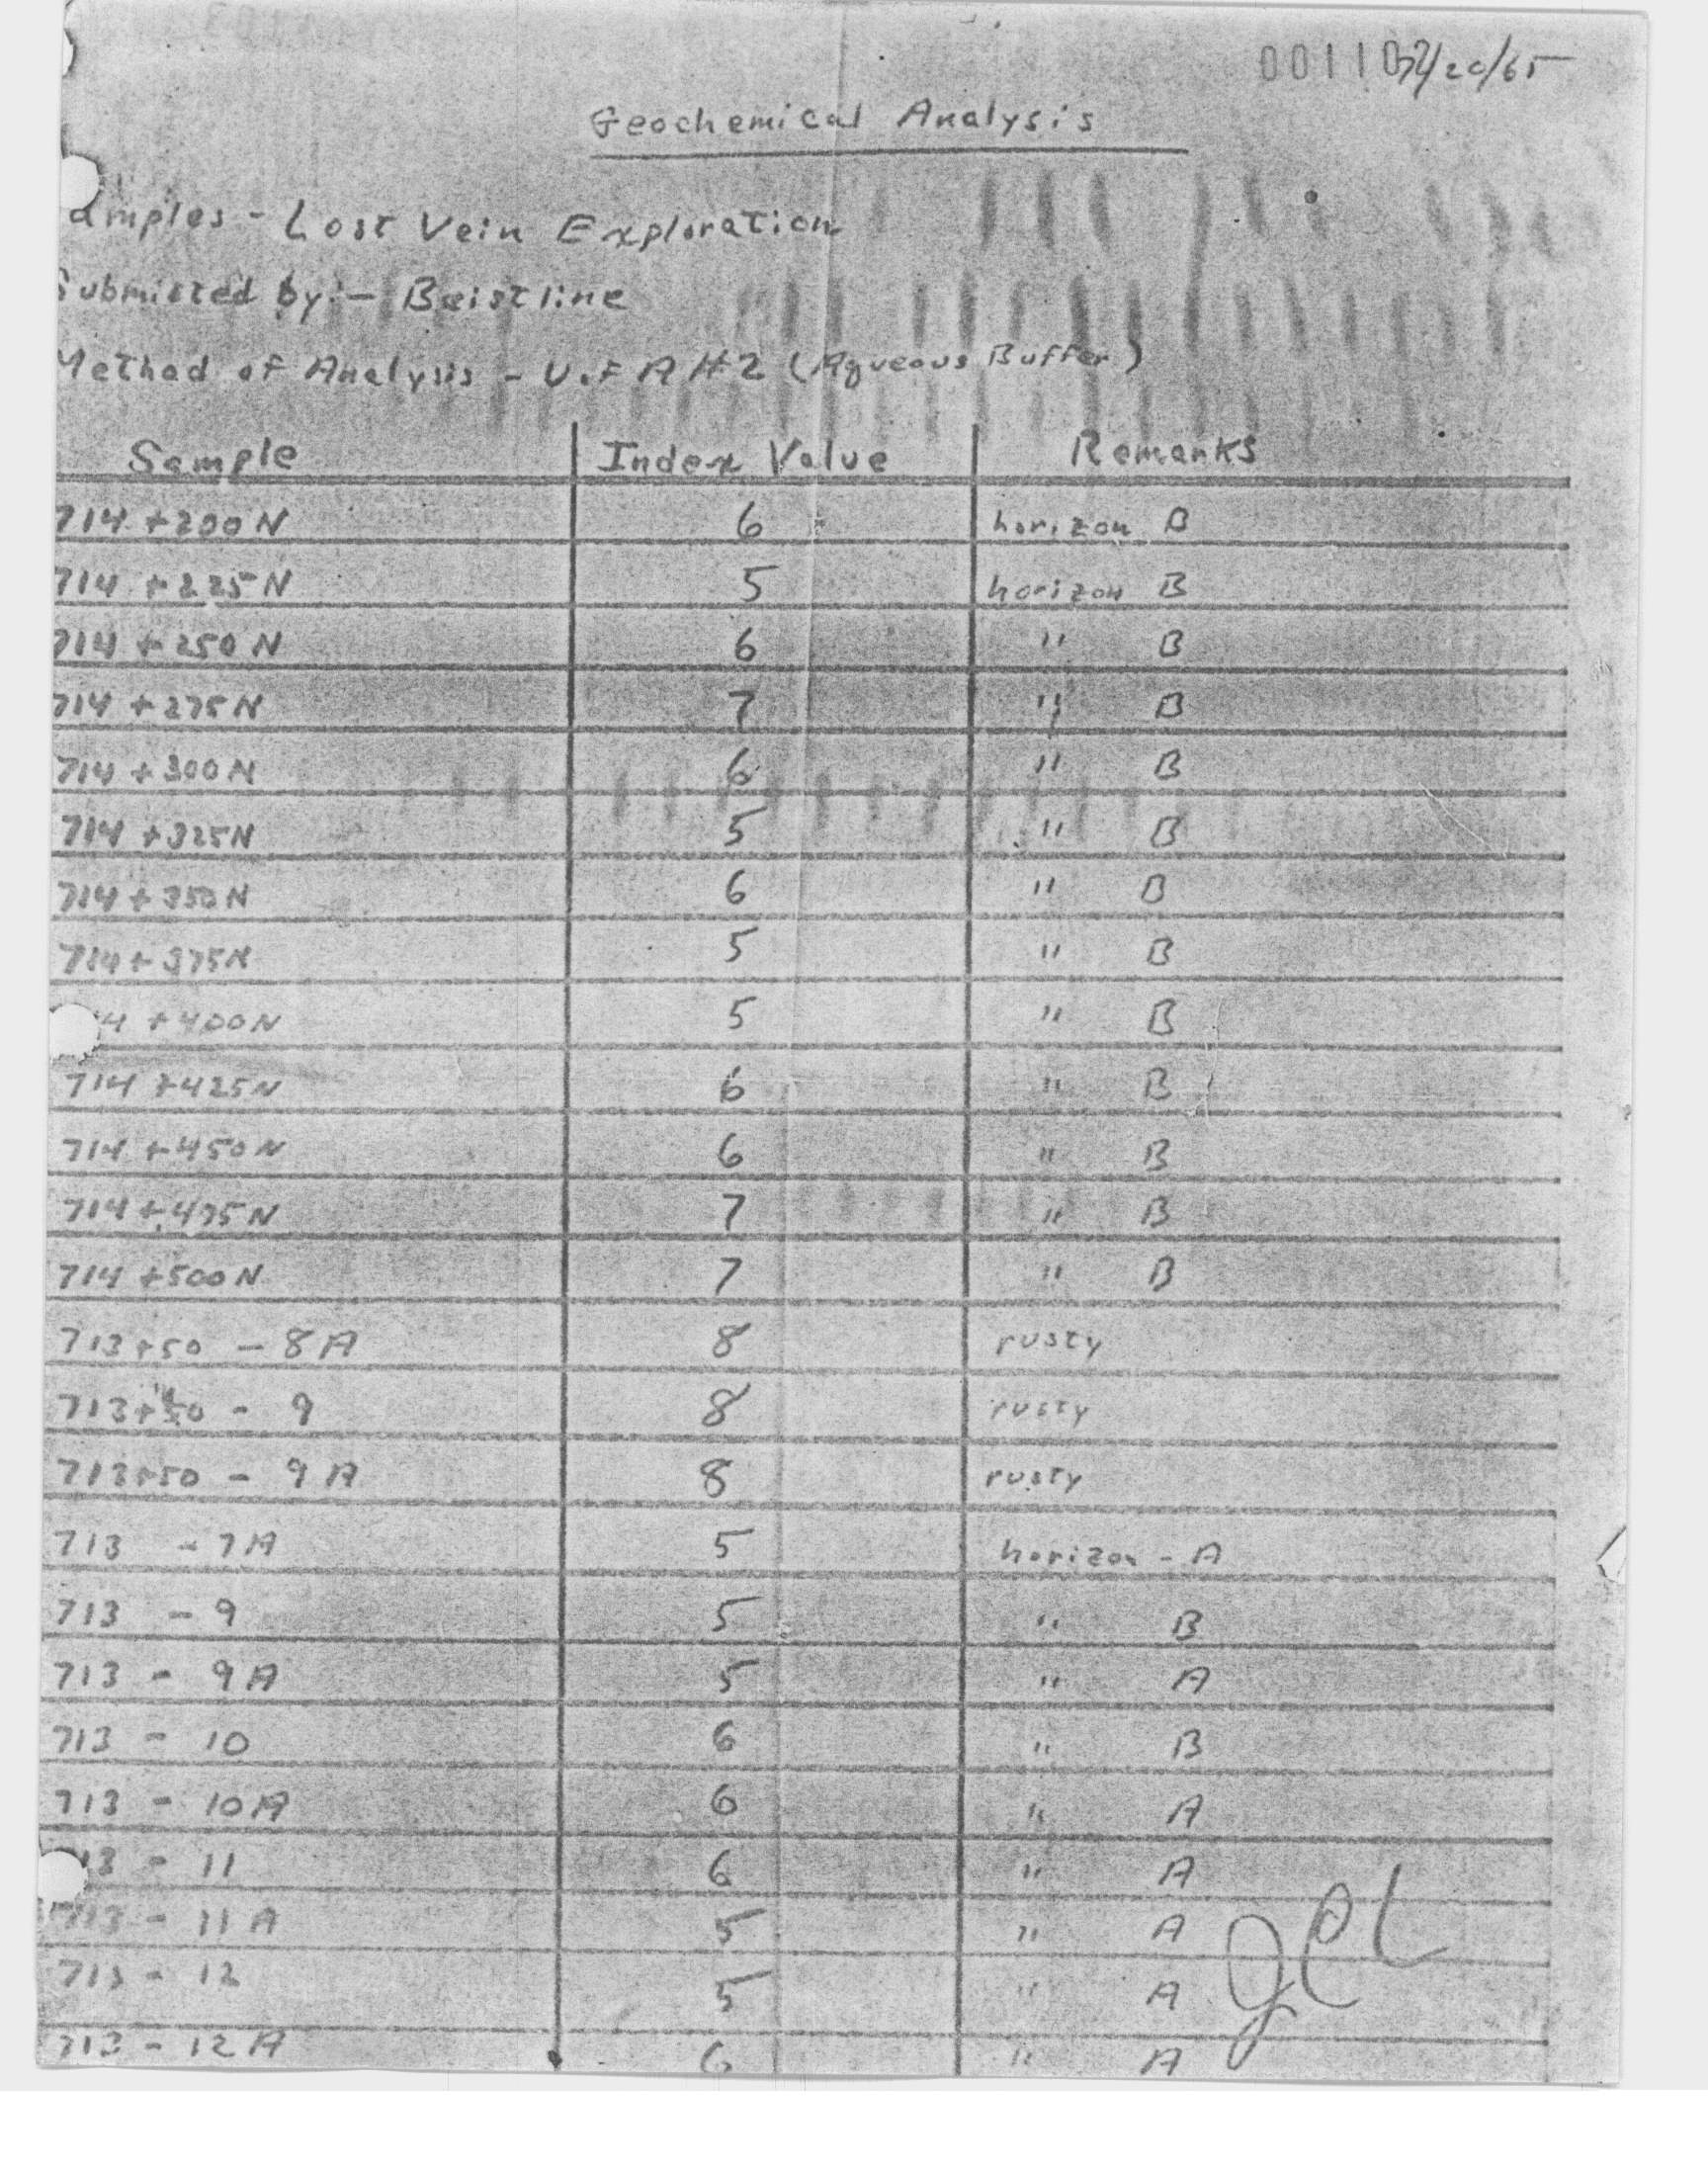 001107
2/20/65
Geochemical Analysis
amples - Lost Vein Exploration
Submitted by:- Beistline
Method of Analysis - U. of A #2 (Aqueous Buffer)
Sample Index Value Remarks
714 +200N 6 horizon B
714 +225N 5 horizon B
714 +250N 6 " B
714 +275N 7 " B
714 +300N 6 " B
714 +325N 5 " B
714 +350N 6 " B
714 +375N 5 " B
14 +400N 5 " B
714 +425N 6 " B
714 +450N 6 " B
714 +475N 7 " B
714 +500N 7 " B
713+50 - 8A 8 rusty
713+50 - 9 8 rusty
713+50 - 9A 8 rusty
713 - 7A 5 horizon - A
713 - 9 5 " B
713 - 9A 5 " A
713 - 10 6 " B
713 - 10A 6 " A
13 - 11 6 " A
713 - 11A 5 " A
713 - 12 5 " A
713 - 12A 6 " A